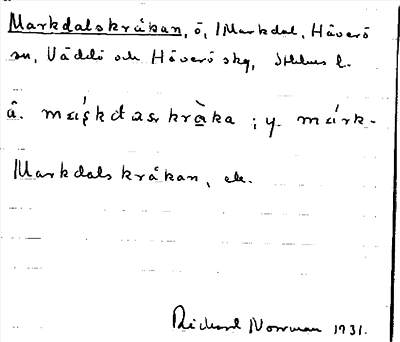 Markdalskråkan, ö, i Markdal, Häverö
sn, Väddö och Häverö skg, Sthlms l.
å. mạṣkdaskrā̀ka ; y. márk-
Markdalskråkan, ek.
Rickard Norrman 1931.